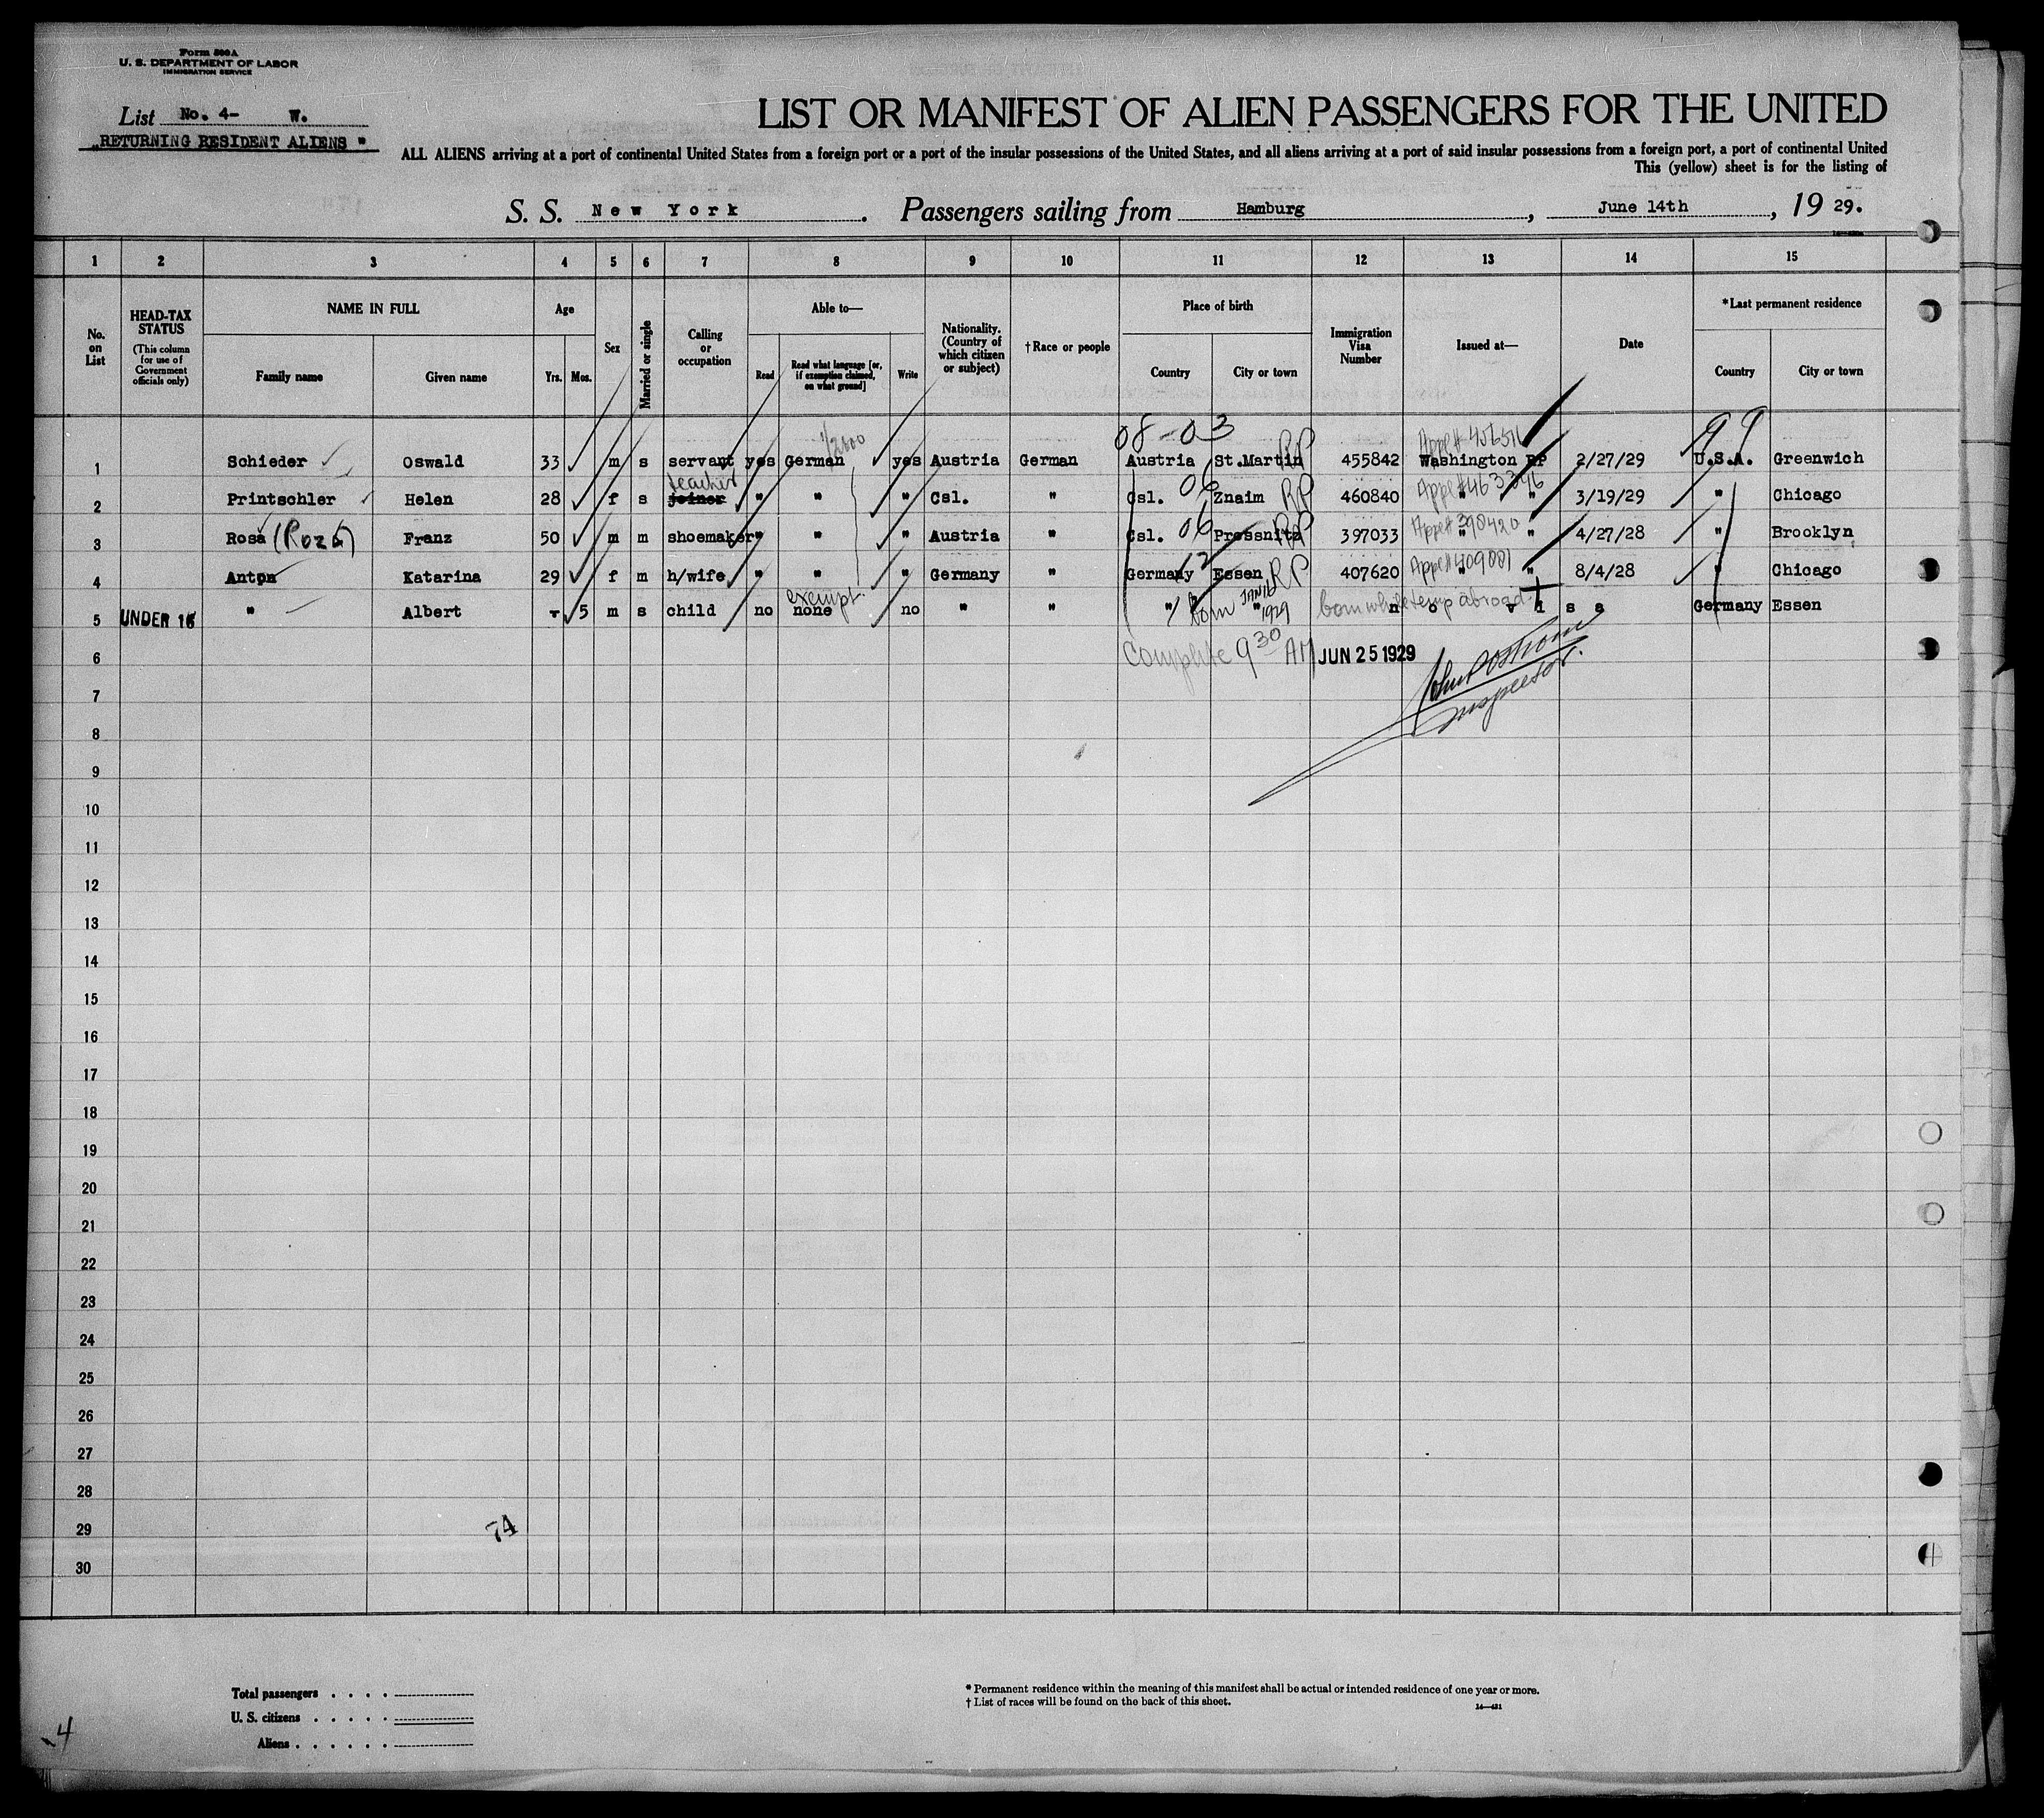 Form 500A
U. S. DEPARTMENT OF LABOR
IMMIGRATION SERVICE
List No. 4- W.
"RETURNING RESIDENT ALIENS "
LIST OR MANIFEST OF ALIEN PASSENGERS FOR THE UNITED
ALL ALIENS arriving at a port of continental United States from a foreign port or a port of the insular possessions of the United States, and all aliens arriving at a port of said insular possessions from a foreign port, a port of continental United
This (yellow) sheet is for the listing of
S. S. New York. Passengers sailing from Hamburg, June 14th, 19 29.
1 2 3 4 5 6 7 8 9 10 11 12 13 14 15
No. on List
HEAD-TAX STATUS (This column for use of Government officials only)
NAME IN FULL
Family name Given name
Age
Yrs. Mos.
Sex
Married or single
Calling or occupation
Able to—
Read
Read what language [or, if exemption claimed, on what ground]
Write
Nationality. (Country of which citizen or subject)
†Race or people
Place of birth
Country City or town
Immigration Visa Number
Issued at—
Date
*Last permanent residence
Country City or town
08-03 99
1/2600 Appl# RP
1 Schieder Oswald 33 m s servant yes German yes Austria German Austria St.Martin 455842 Washington RP 2/27/29 U.S.A. Greenwich
teacher 06 RP Appl# 463396
2 Printschler Helen 28 f s joiner " " " Csl. " Csl. Znaim 460840 " " 3/19/29 " Chicago
(Roza) 06 RP Appl# 398420
3 Rosa Franz 50 m m shoemaker " " " Austria " Csl. Prossnitz 397033 " " 4/27/28 " Brooklyn
12 RP Appl# 409881
4 Anton Katarina 29 f m h/wife " " " Germany " Germany Essen 407620 " " 8/4/28 " Chicago
exempt. born JAN 1929 born while temp abroad
5 UNDER 16 " Albert - 5 m s child no none no " " " " no visa Germany Essen
6 Complete 9 30 AM JUN 25 1929
Inspector.
7
8
9
10
11
12
13
14
15
16
17
18
19
20
21
22
23
24
25
26
27
28
29 74
30
Total passengers . . . .
U. S. citizens . . . . .
Aliens . . . . . .
* Permanent residence within the meaning of this manifest shall be actual or intended residence of one year or more.
† List of races will be found on the back of this sheet.
14—431
4